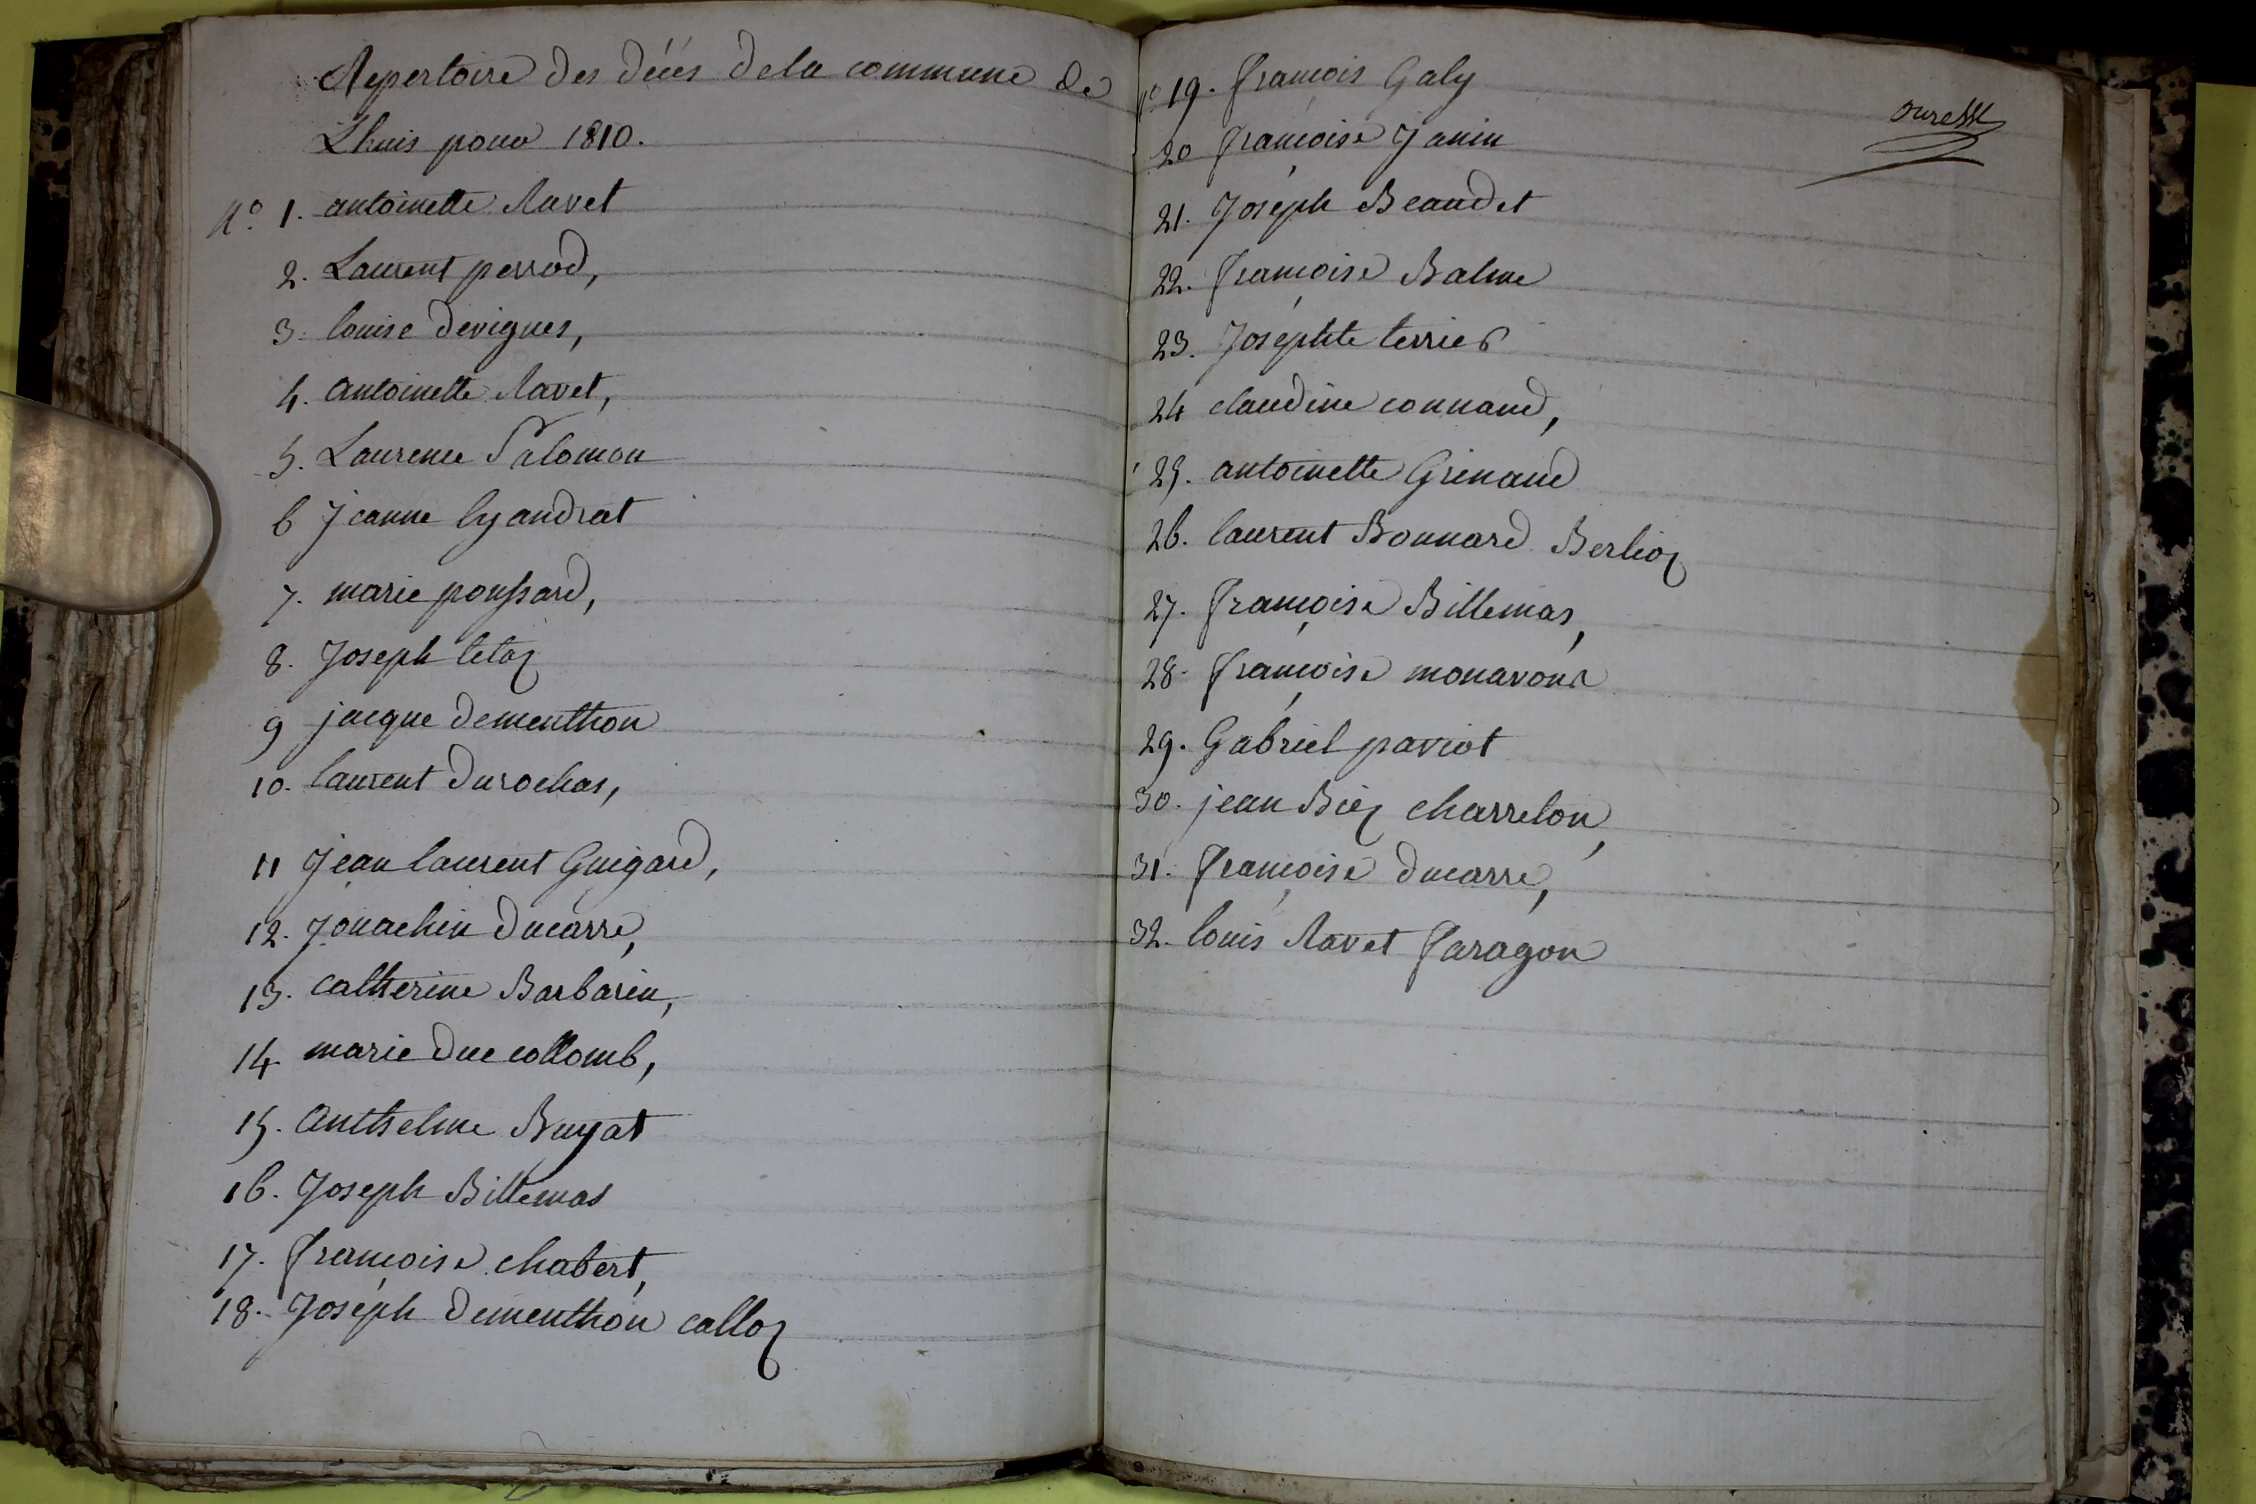 Repertoire des décés dela commune de
Lhuis pour 1810.
N.º 1. antoinette Ravet
2. Laurent perrod,
3. louise devignes,
4. antoinette Ravet,
5. Laurence Salomon
6 Jeanne lyandrat
7. marie poussard,
8. Joseph tetaz
9 jacque dementhon
10. laurent durochas,
11 Jean laurent Guigard,
12. Jouachin ducarre,
13. catherine Barbarin,
14. marie duc collomb,
15. anthelme Buyat
16. Joseph Billemas
17. françoise chabert,
18. Joseph dementhon calloz
nº 19. françois Galy
20 françoise Janin
21. Joseph Beaudet
22. françoise Balme
23. Josephte terrier
24 claudine connand,
25. antoinette Grinand
26. laurent Bonnard Berlioz
27. françoise Billemas,
28. françoise monavon
29. Gabriel paviot
30. jean Biez charrelon,
31. françoise ducarre,
32. louis Ravet faragon